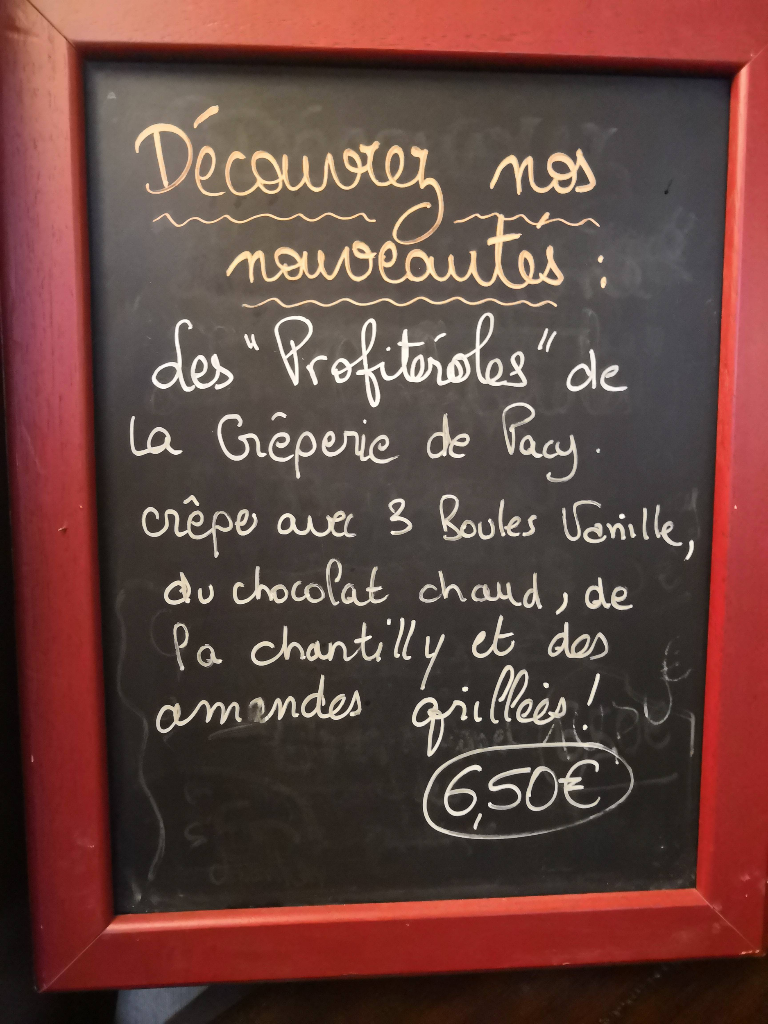 Découvrez nos
nouveautés :
des "Profitéroles" de
La Crêperie de Pacy.
crêpe avec 3 Boules Vanille,
du chocolat chaud, de
la chantilly et des
amandes grillées !
6,50€